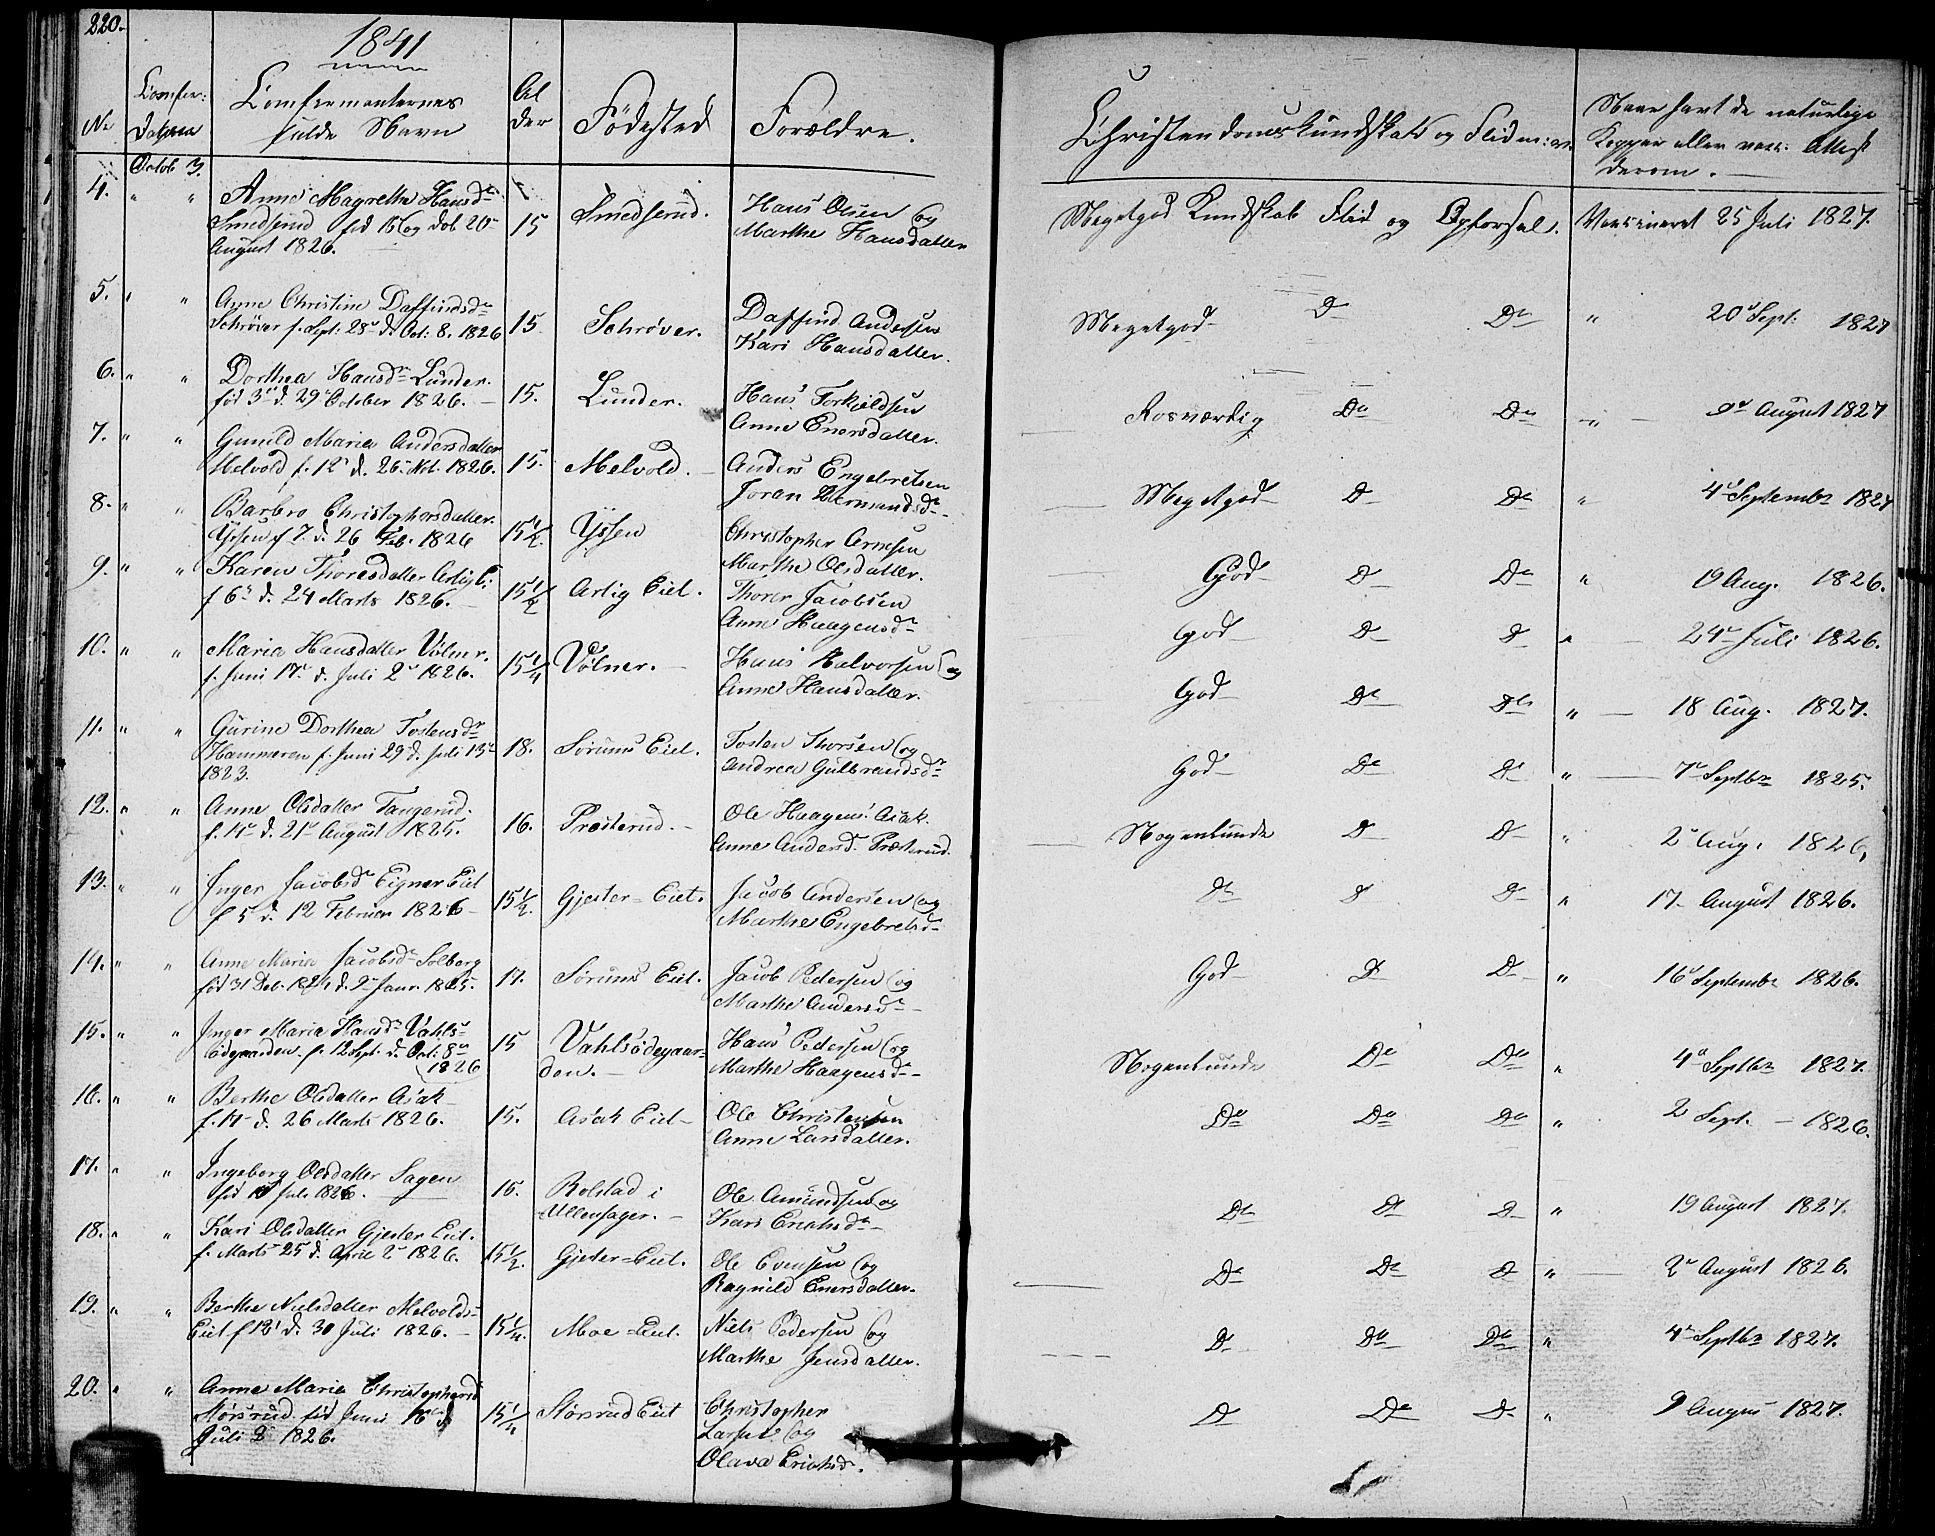 220.
1841
No
Comfer:
Datum
Comfirmanternes
fulde Navn
Al
der
Fødested
Forældre.
Christendomskundskab og Flid m: v.
Naar havt de naturlige
Kopper eller vacc: Attest
derom.
Octob 3.
4. " " Anne Magrethe Hansdr 15 Smedserud. Hans Olsen og
Smedserud fød 15 og døb 20 Marthe Hansdatter
August 1826.
Megetgod Kundskab Flid og Opførsel. Vaccineret 25 Juli 1827.
5. " " Anne Christine Daffindsdr
Schrøver f. Sept. 28 d. Oct. 8. 1826 15 Schrøver. Daffind Andersen
Kari Hansdatter.
Megetgod Do Do " 20 Sept. 1827
6. " " Dorthea Hansdr Lunder.
fød 3 d. 29 October 1826. 15. Lunder. Hans Torkieldsen
Anne Enersdatter.
Rosværdig Do Do " August 1827
7. " " Gunild Maria Andersdatter
Melvold f. 12 d. 26 1826. 15. Melvold. Anders Engebretsen
Joran
Megetgod Do Do " 4 Septembr 1827
8. " " Barbro Christophersdatter
Ÿssen f 7. d. 26 Feb. 1826 15 1/2. Ÿssen Christopher Arnesen
Marthe Olsdatter.
God Do Do " 19 Aug. 1826.
9. " " Karen Thoresdatter Arlig E:
f 6 d. 24 Marts 1826. 15 1/2 Arlig Eiet. Thorer Jacobsen
Anne Haagensdr
God Do Do " 24 Juli 1826.
10. " " Maria Hansdatter Vølner.
f. Juni 17 d. Juli 2 1826. 15 1/4 Vølner. Hans Halvorsen og
Anne Hansdatter.
God Do Do " 18 Aug. 1827.
11. " " Gurine Dorthea Tostensdr
Hammeren f. Juni 29 d. Juli 13 18. Sørums Eiet. Tosten Thorsen og
1823. Andrea Gulbrandsdr
God Do Do " 7 Septbr 1825.
12. " " Anne Olsdatter Tangerud.
f. 14 d. 21 August 1825. 16. Præsterud. Ole Haagens. Asak.
Anne Andersd. Præsterud.
Nogenlunde Do Do " 2 Aug. 1826,
13. " " Inger Jacobsdr Eigner Eiet
f 5 d. 12 Februar 1826 15 1/2. Gjester-Eiet. Jacob Andersen og
Marthe Engebretsd
Do Do Do " 17 August 1826.
14. " " Anne Maria Jacobsdr Solberg
fød 31 Deb. 1824 d. 2 Janr. 1825. 17. Sørums Eiet. Jacob Pedersen og
Marthe Andersdr
God Do Do " 16 Septembr 1826.
15. " " Inger Maria Hansdr Vahls-
ødegaarden. f. 12 Sept. d. Oct: 8 15 Vahlsödegaar- Hans Pedersen og
1826 den. Marthe Haagensdr
Nogenlunde Do Do " 4 Septbr 1827.
16. " " Berthe Olsdatter Asak
f. 14 d. 26 Marts 1826. 15. Asak Eiet Ole Christensen
Anne Larsdatter.
Do Do Do " 2 Sept. 1826.
17. " " Ingeborg Olsdatter Sagen
fød Juli 1826. 15. Rolstad i Ole Amundsen og
Ullensager. Kari Erichsdr
Do Do Do " 19 August 1827.
18. " " Kari Olsdatter Gjester Eiet.
f. Marts 25 d. April 2 1826. 15 1/2. Gjester-Eiet. Ole Evensen og
Ragnild Enersdatter.
Do Do Do " 2 August 1826.
19. " " Berthe Nielsdatter Melvolds-
Eiet f 12 d. 30 Juli 1826. 15 1/4. Moe-Eiet. Niels Pedersen og
Marthe Jensdatter.
Do Do Do " 4 Septbr 1827.
20. " " Anne Maria Christophersd
Størsrud. fød Juni 16 d 15 1/4 Størsrud Eiet Christopher
Juli 2 1826. Larsen og
Olava Erichsd.
Do Do Do " 9 August 1827.